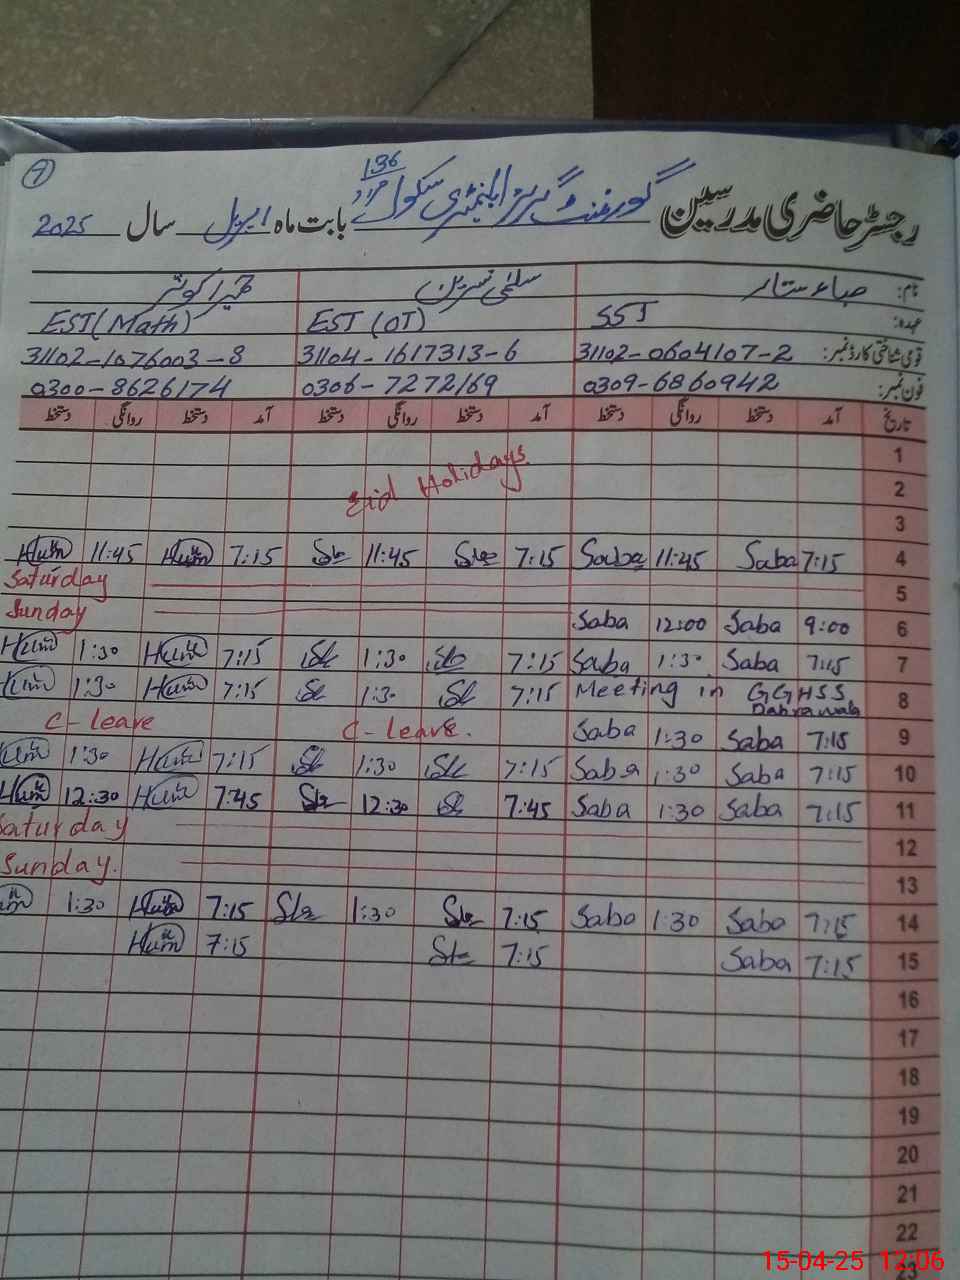 7
رجسٹر حاضری مدرسین گورنمنٹ گرلز ایلیمنٹری سکول 136 مراد بابت ماہ اپریل سال 2025
نام: صباء ستار سلمٰی نسرین حمیرا کوثر
عہدہ: SST EST (OT) EST (Math)
قومی شناختی کارڈ نمبر: 31102-0604107-2 31104-1617313-6 31102-1076003-8
فون نمبر: 0309-6860942 0306-7272169 0300-8626174
تاریخ آمد دستخط روانگی دستخط آمد دستخط روانگی دستخط آمد دستخط روانگی دستخط
1
2 Eid Holidays
3
4 7:15 Saba 11:45 Saba 7:15 Sle 11:45 Sle 7:15 Hum 11:45 Hum
5 Saturday
6 9:00 Saba 12:00 Saba Sunday
7 7:15 Saba 1:30 Saba 7:15 Sle 1:30 Sle 7:15 Hum 1:30 Hum
8 Meeting in GGHSS Dahrawala 7:15 Sle 1:30 Sle 7:15 Hum 1:30 Hum
9 7:15 Saba 1:30 Saba C-leave. C-leave
10 7:15 Saba 1:30 Saba 7:15 Sle 1:30 Sle 7:15 Hum 1:30 Hum
11 7:15 Saba 1:30 Saba 7:45 Sle 12:30 Sle 7:45 Hum 12:30 Hum
12 Saturday
13 Sunday.
14 7:15 Saba 1:30 Saba 7:15 Sle 1:30 Sle 7:15 Hum 1:30 Hum
15 7:15 Saba 7:15 Sle 7:15 Hum
16
17
18
19
20
21
22
23
15-04-25 12:06